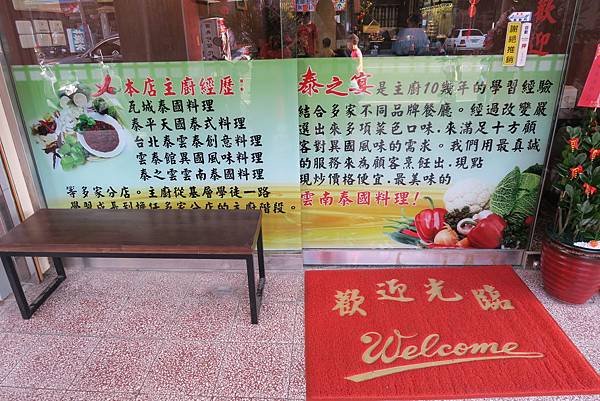 本店主廚經歷:
瓦城泰國料理
泰平天國泰式料理
台北泰雲泰創意料理
雲泰館異國風味料理
泰之雲雲南泰國料理
等多家分店。主廚從基層學徒一路
學習成長到擔任多家分店的主廚階段。
泰之宴是主廚10幾年的學習經驗
結合多家不同品牌餐廳。經過改變嚴
選出來多項菜色口味.來滿足十方顧
客對異國風味的需求。我們用最真誠
的服務來為顧客烹飪出.現點
現炒價格便宜.最美味的
雲南泰國料理!
謝絕推銷
歡迎
歡迎光臨
Welcome